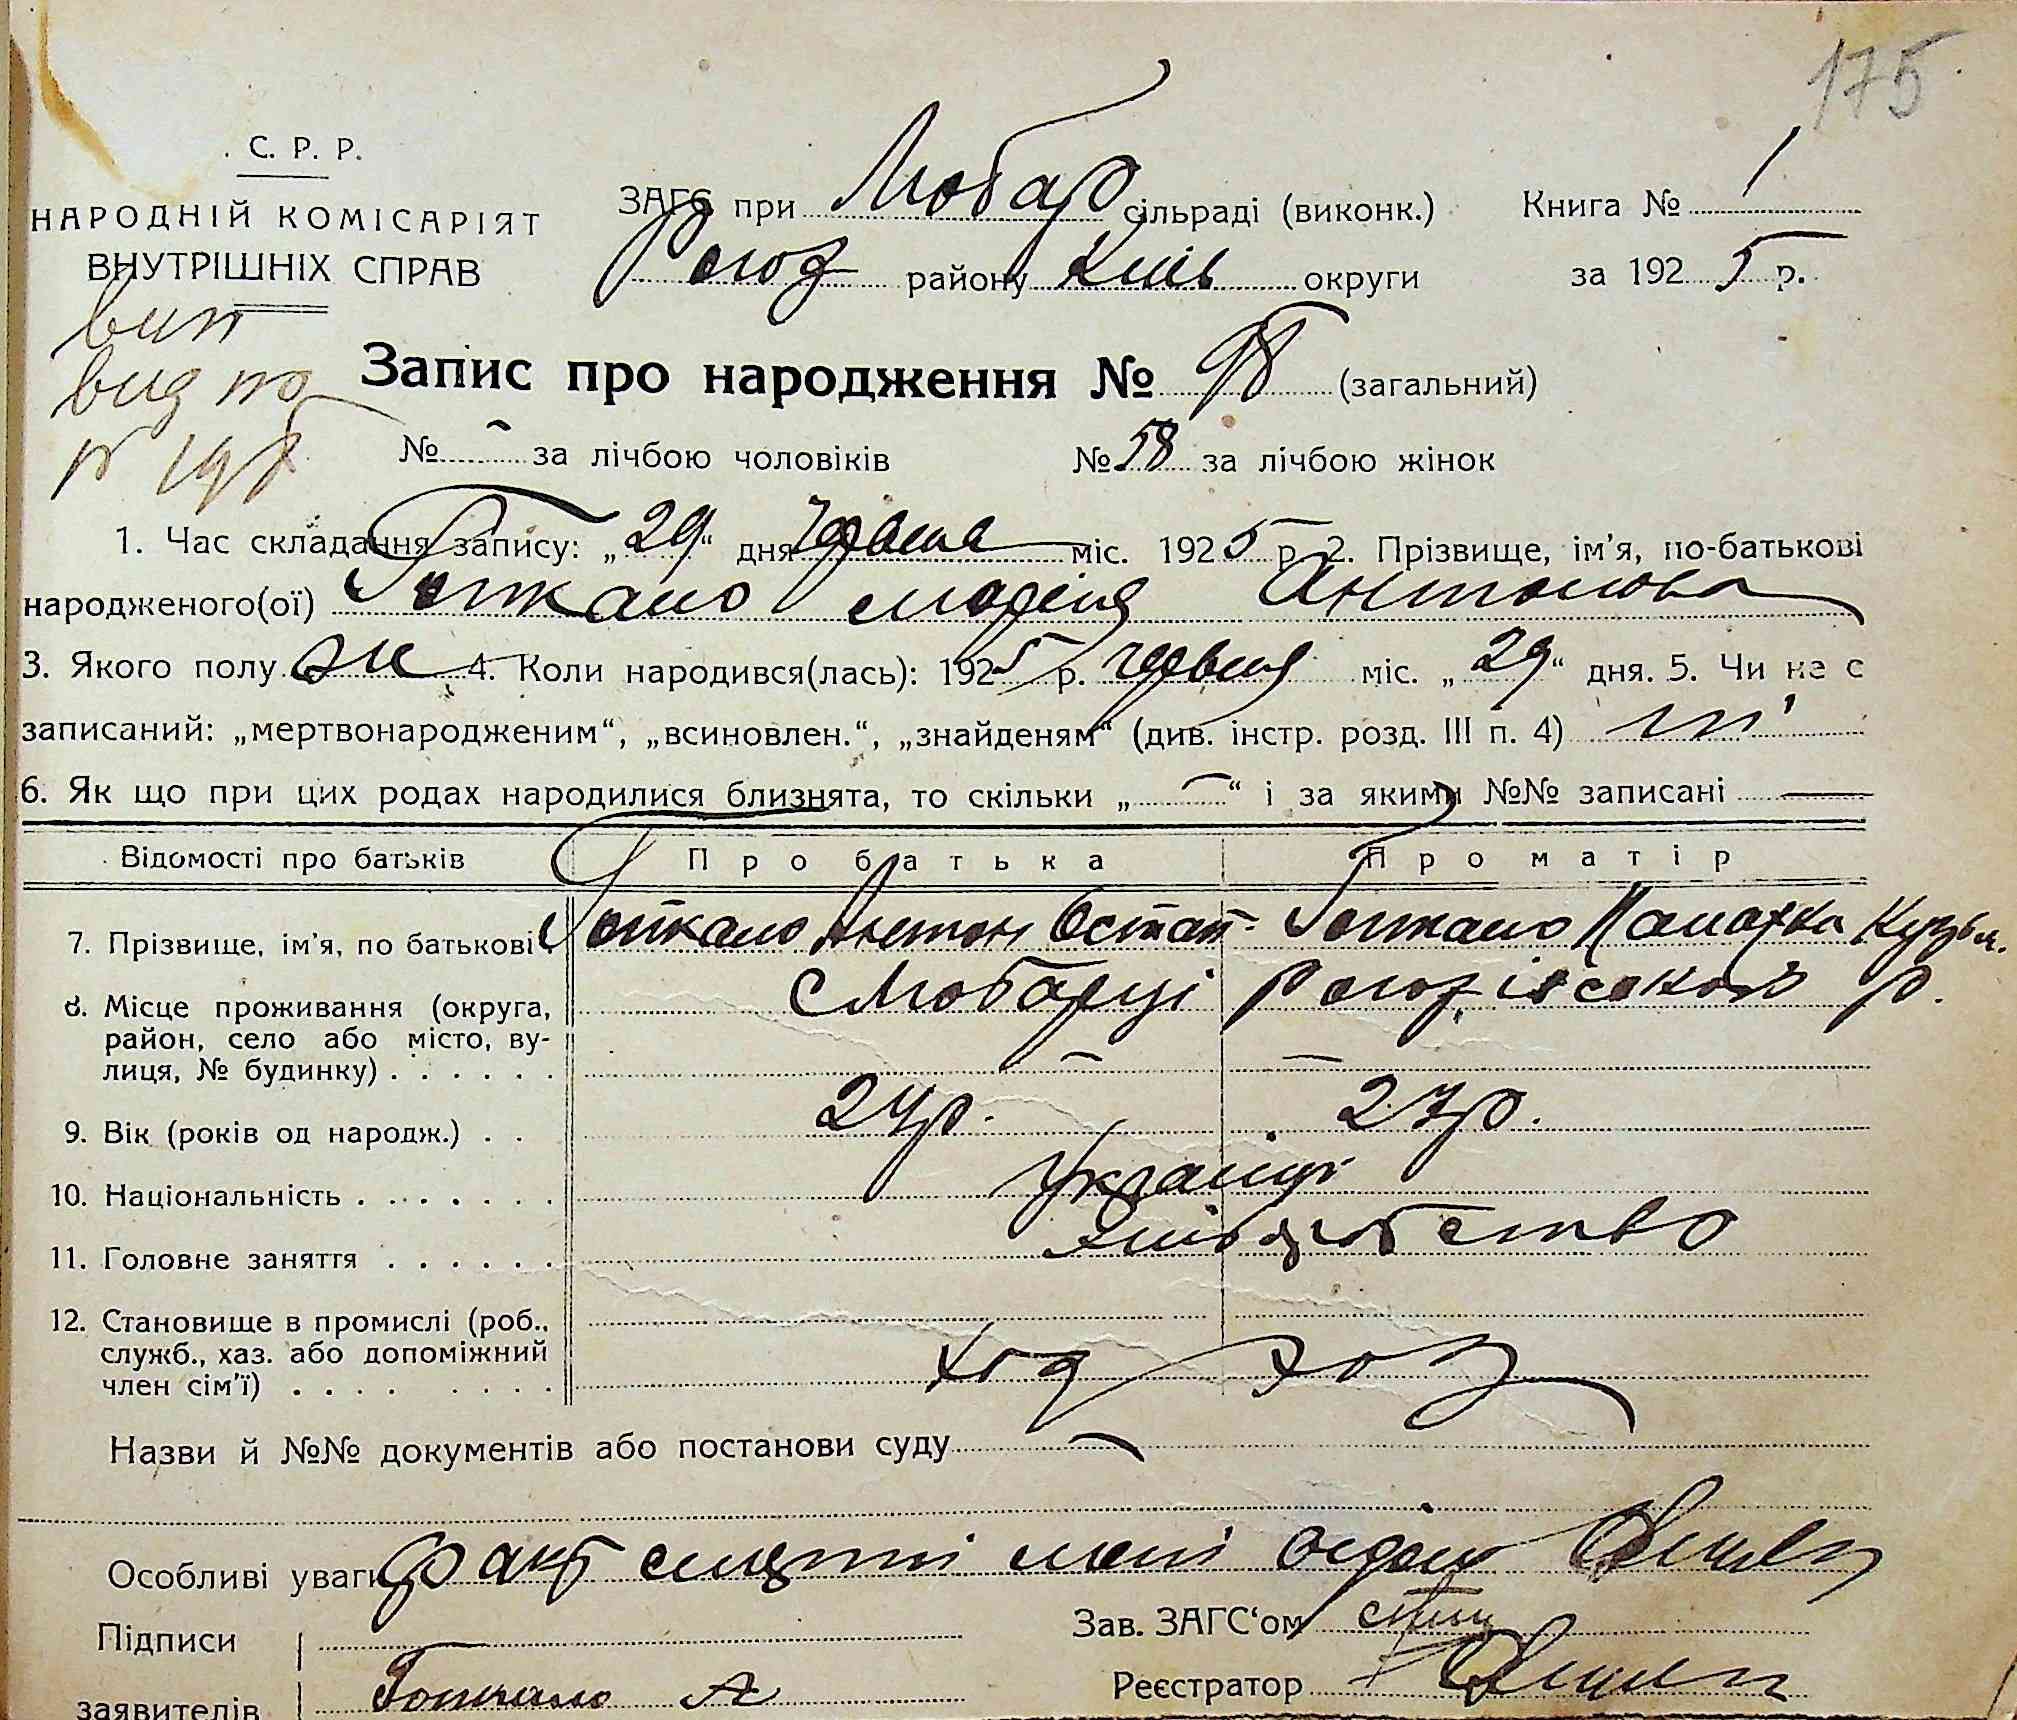 175
С. Р. Р.
НАРОДНІЙ КОМІСАРІЯТ
ВНУТРІШНІХ СПРАВ
ЗАГС при Любар сільраді (виконк.)
Рогоз району Київ округи
Книга № 1
за 1925 р.
вид по
Запис про народження № (загальний)
№ - за лічбою чоловіків № 58 за лічбою жінок
1. Час складання запису: „29“ дня червня міс. 1925 р. 2. Прізвище, ім'я, по-батькові
народженого(ої) Гопкало Марія Антонова
3. Якого полу ж 4. Коли народився(лась): 1925 р. червня міс. „29“ дня. 5. Чи не є
записаний: „мертвонародженим“, „всиновлен.“, „знайденям“ (див. інстр. розд. III п. 4)
6. Як що при цих родах народилися близнята, то скільки „-“ і за якими №№ записані —
Відомості про батьків Про батька Про матір
7. Прізвище, ім'я, по батькові Гопкало Антон Остап. Гопкало Кузьм.
8. Місце проживання (округа, с Любарці Рогозівського р.
район, село або місто, ву-
лиця, № будинку) . . . . . . - -
9. Вік (років од народж.) . . 24 р. 27 р.
10. Національність . . . . . . . Українці
11. Головне заняття . . . . . . хліборобство
12. Становище в промислі (роб.,
служб., хаз. або допоміжний
член сім'ї) . . . . . . . .
Назви й №№ документів або постанови суду —
Особливі уваги факт смерти мені
Підписи
заявителів Гопкало А
Зав. ЗАГС'ом
Реєстратор